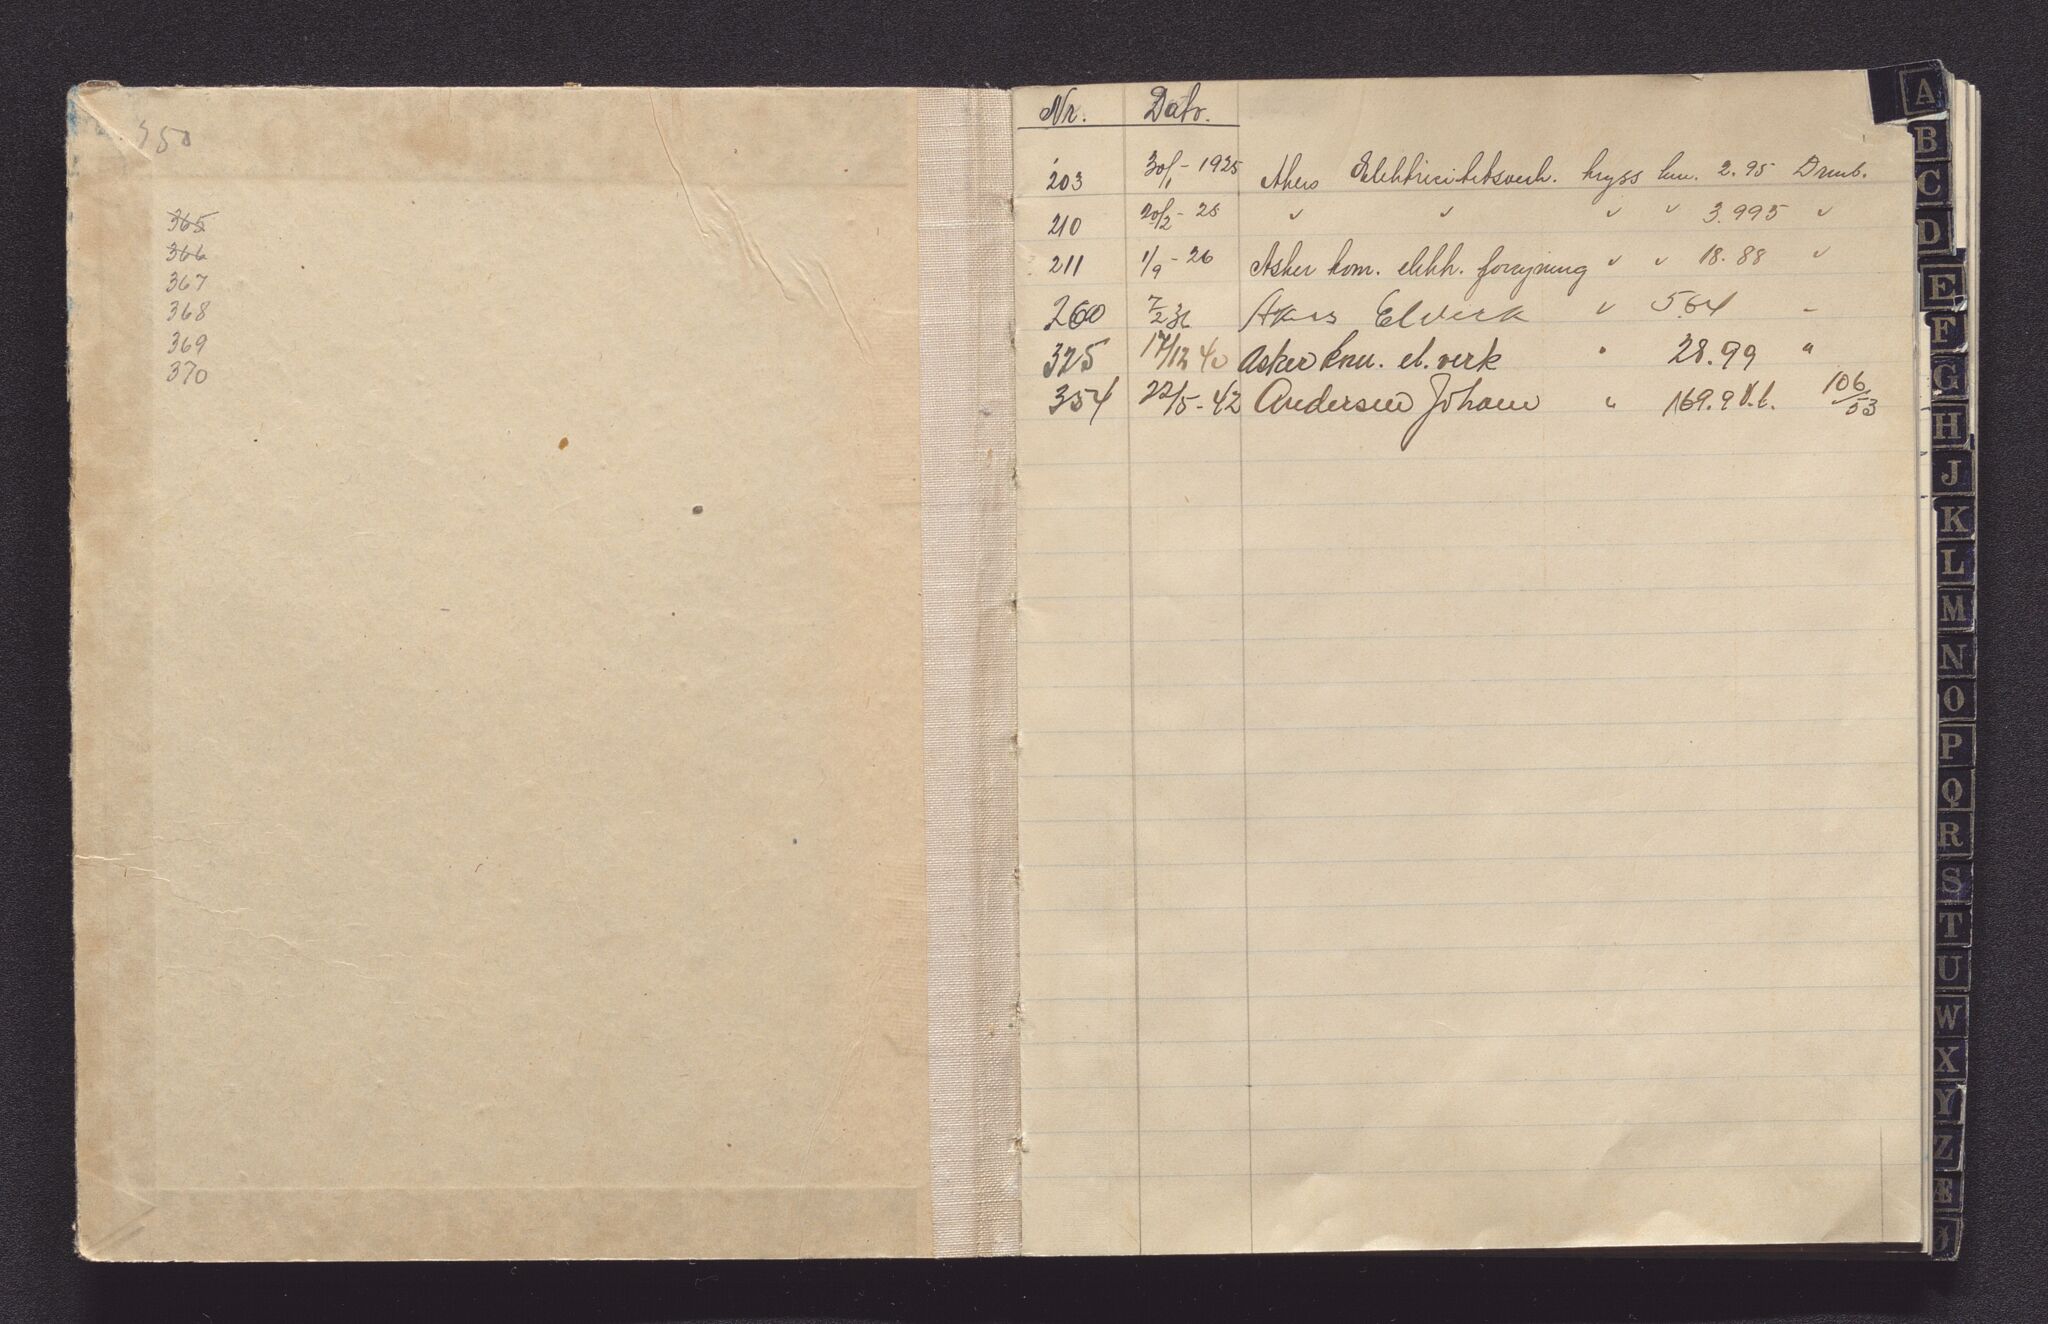 350
365
366
367
368
369
370
Nr. Dato.
203 30/1 - 1925 Akers Elektricitetsverk. kryss km. 2.95 Drmb.
210 20/2 - 25 " " " " 3.995 "
211 1/9 - 26 Asker kom. elekk. forsyning " " 18.88 "
260 7/2 36 Akers Elverk " 5.64 -
325 17/12 40 Asker kom. el. verk " 28.99 "
354 22/5 - 42 Andersen Johan " 169.9 V.b. 106/53
A
B
C
D
E
F
G
H
J
K
L
M
N
O
P
Q
R
S
T
U
W
X
Y
Z
Æ
Ø